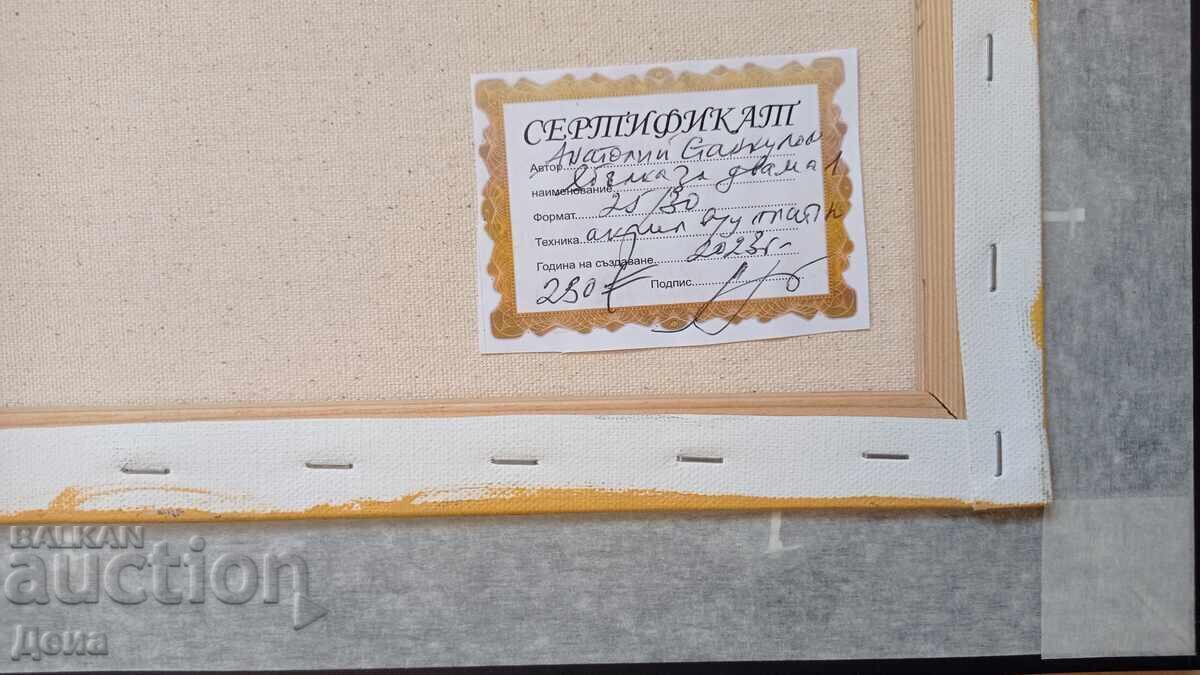 СЕРТИФИКАТ
Автор Анатолий Станкулов
наименование Ябълка за двама 1
Формат 25/30
Техника акрил в/у платн
Година на създаване 2023г-
Подпис
BALKAN
auction
Деиа